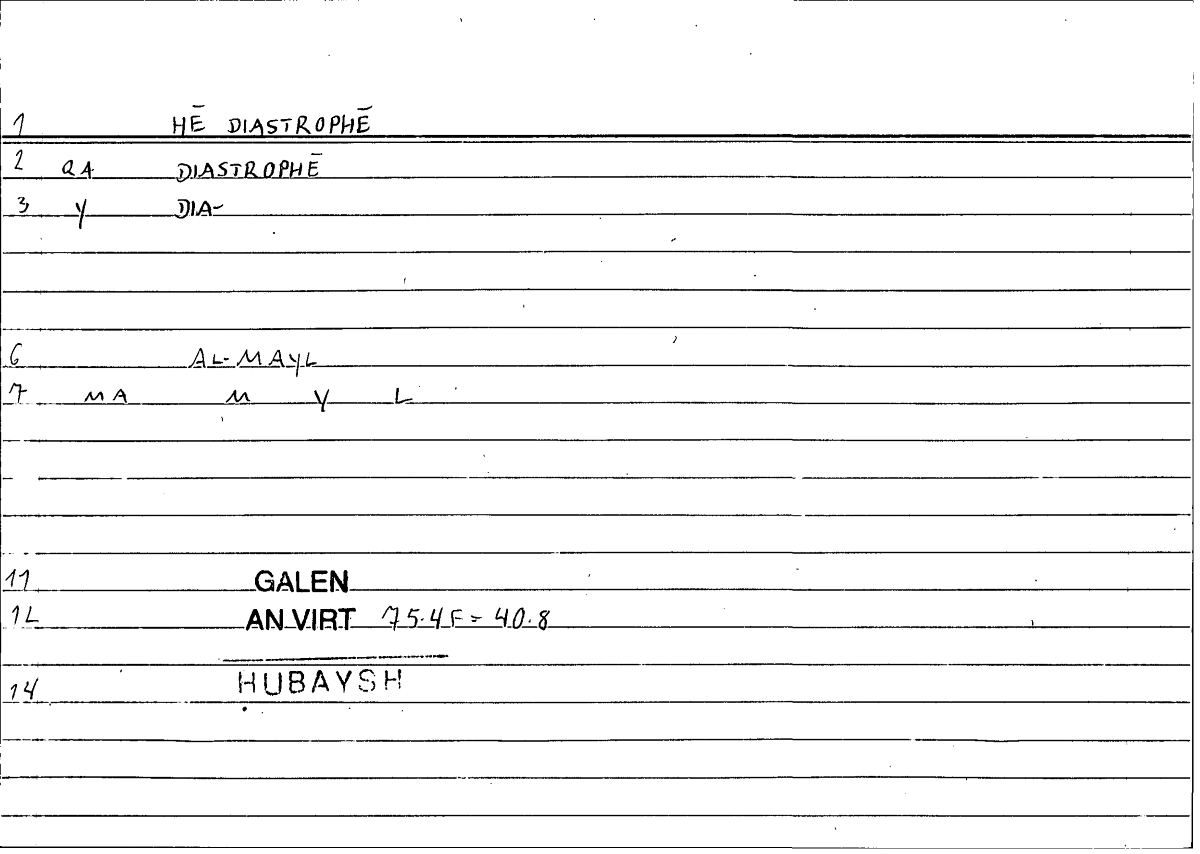 1 HĒ DIASTROPHĒ
2 QA DIASTROPHĒ
3 Y DIA-
6 AL-MAYL
7 MA M Y L
11 GALEN
12 AN VIRT 75.4F = 40.8
14 ḤUBAYSH